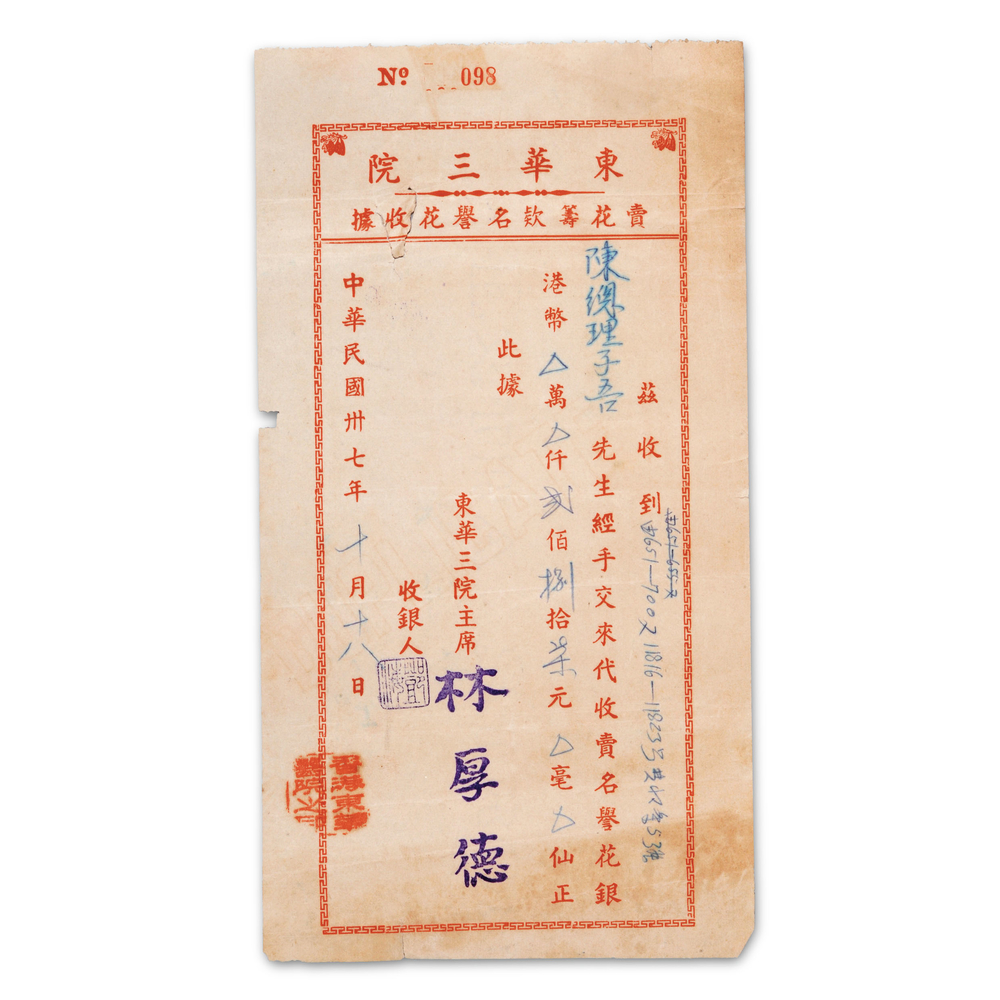 Nº 098
東華三院
賣花籌欵名譽花收據
茲收到
由651—700又11816—11823号
陳總理子吾先生經手交來代收賣名譽花銀
港幣△萬△仟貳佰捌拾柒元△毫△仙正
此據
東華三院主席 林厚德
收銀人
中華民國卅七年十月十八日
香港東華